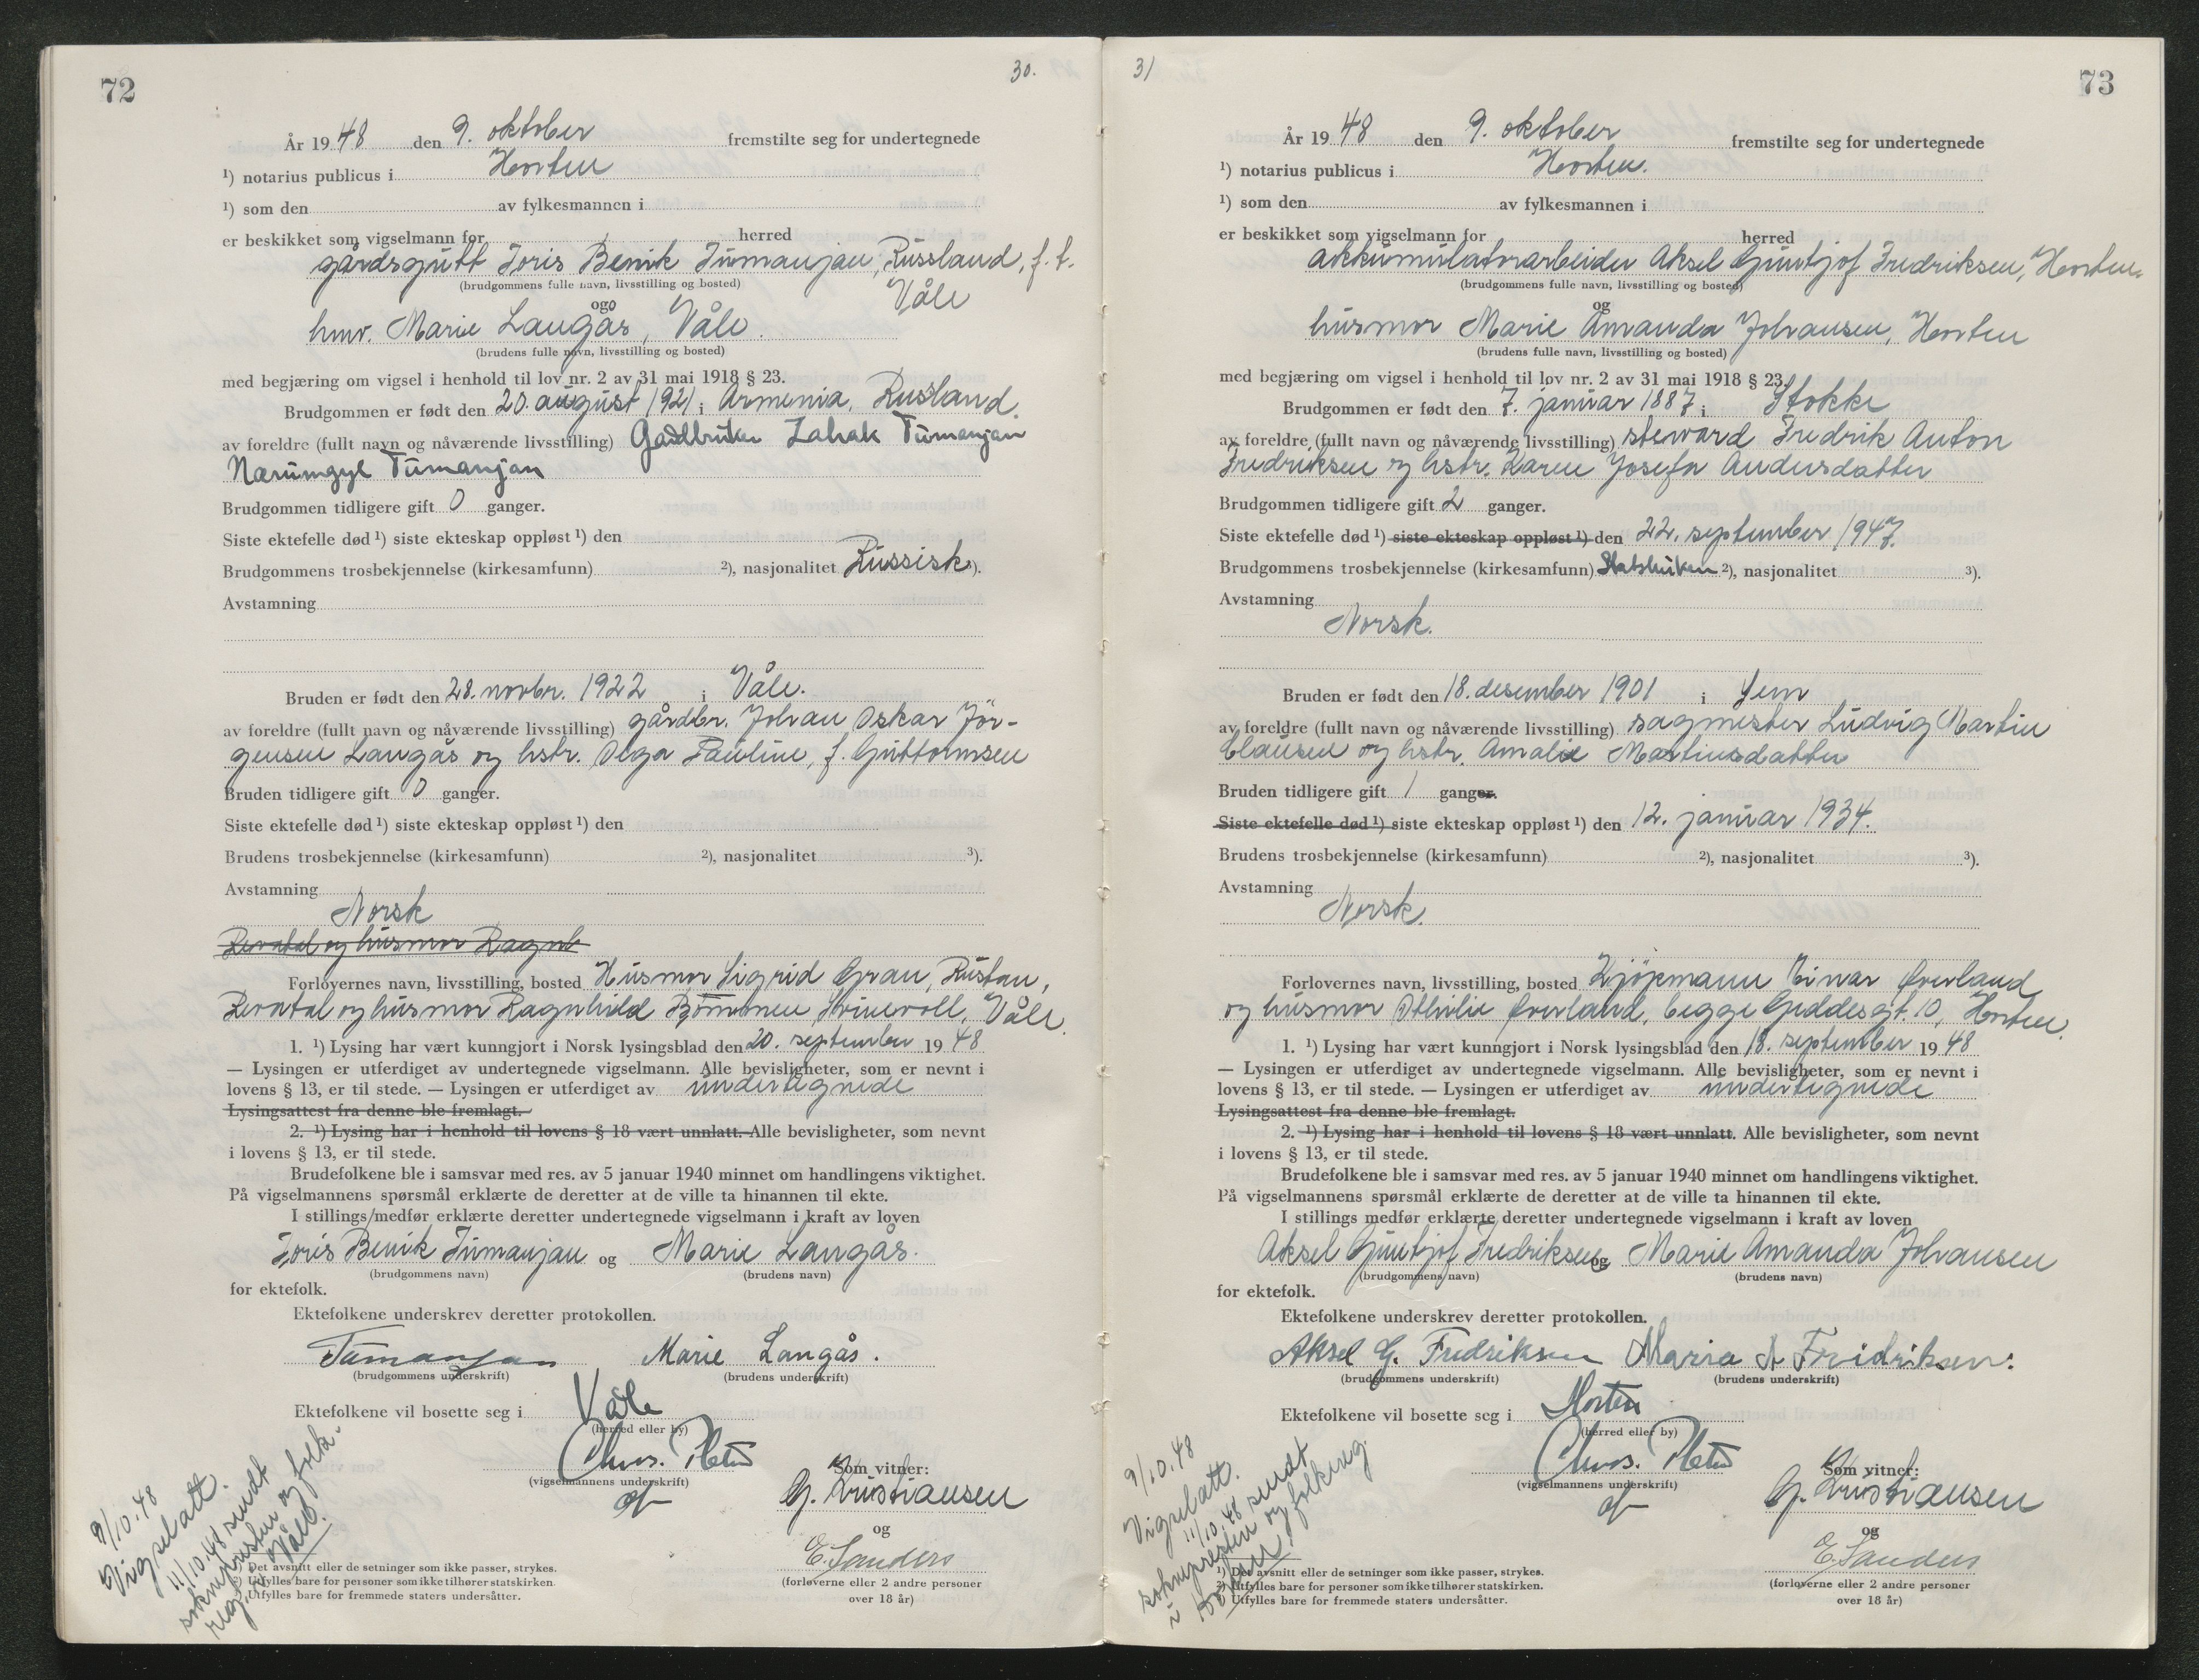 72
30.
År 1948 den 9. oktober fremstilte seg for undertegnede
¹) notarius publicus i Horten
¹) som den av fylkesmannen i
er beskikket som vigselmann for herred
gårdsgutt Joris Benik Tumanjan, Russland, f. t.
(brudgommens fulle navn, livsstilling og bosted) Våle
og
hmv. Marie Langås, Våle.
(brudens fulle navn, livsstilling og bosted)
med begjæring om vigsel i henhold til lov nr. 2 av 31 mai 1918 § 23.
Brudgommen er født den 20. august 1921 i Armenia, Rusland.
av foreldre (fullt navn og nåværende livsstilling) Gadbruker Zahak Tumanjan
Narumgyl Tumanjan
Brudgommen tidligere gift 0 ganger.
Siste ektefelle død ¹) siste ekteskap oppløst ¹) den
Brudgommens trosbekjennelse (kirkesamfunn) ²), nasjonalitet Russisk ³).
Avstamning
Bruden er født den 28. novbr. 1922 i Våle.
av foreldre (fullt navn og nåværende livsstilling) gårdbr. Johan Oskar Jör-
gensen Langås og hstr. Olga Pauline, f. Guttormsen
Bruden tidligere gift 0 ganger.
Siste ektefelle død ¹) siste ekteskap oppløst ¹) den
Brudens trosbekjennelse (kirkesamfunn) ²), nasjonalitet ³).
Avstamning
Norsk
Revatal og husmor Ragnh
Forlovernes navn, livsstilling, bosted Husmor Sigrid Gran, Rustan,
Revatal og husmor Ragnhild Bjömmen, Våle.
1. ¹) Lysing har vært kunngjort i Norsk lysingsblad den 20. september 1948
— Lysingen er utferdiget av undertegnede vigselmann. Alle bevisligheter, som er nevnt i
lovens § 13, er til stede. — Lysingen er utferdiget av undertegnede
Lysingsattest fra denne ble fremlagt.
2. ¹) Lysing har i henhold til lovens § 18 vært unnlatt. Alle bevisligheter, som nevnt
i lovens § 13, er til stede.
Brudefolkene ble i samsvar med res. av 5 januar 1940 minnet om handlingens viktighet.
På vigselmannens spørsmål erklærte de deretter at de ville ta hinannen til ekte.
I stillings medfør erklærte deretter undertegnede vigselmann i kraft av loven
Joris Benik Tumanjan og Marie Langås.
(brudgommens navn) (brudens navn)
for ektefolk.
Ektefolkene underskrev deretter protokollen.
Tumanjan Marie Langås.
(brudgommens underskrift) (brudens underskrift)
Ektefolkene vil bosette seg i Våle
(herred eller by)
Chrs. Platou
(vigselmannens underskrift) Som vitner:
G. Kristiansen
og
E. Sanders
(forloverne eller 2 andre personer
over 18 år)
9/10.48
Vigselatt.
11/10.48 sendt
sokneprester og folk-
reg. i Våle.
¹) Det avsnitt eller de setninger som ikke passer, strykes.
²) Utfylles bare for personer som ikke tilhører statskirken.
³) Utfylles bare for fremmede staters undersåtter.
31
73
År 1948 den 9. oktober fremstilte seg for undertegnede
¹) notarius publicus i Horten.
¹) som den av fylkesmannen i
er beskikket som vigselmann for herred
akkumulatorarbeider Aksel Guntjof Fredriksen, Horten.
(brudgommens fulle navn, livsstilling og bosted)
og
husmor Marie Amanda Johansen, Horten
(brudens fulle navn, livsstilling og bosted)
med begjæring om vigsel i henhold til lov nr. 2 av 31 mai 1918 § 23.
Brudgommen er født den 7. januar 1887 i Stokke
av foreldre (fullt navn og nåværende livsstilling) steward Fredrik Anton
Fredriksen og hstr. Karen Josefa Andersdatter
Brudgommen tidligere gift 2 ganger.
Siste ektefelle død ¹) siste ekteskap oppløst ¹) den 22. september 1947.
Brudgommens trosbekjennelse (kirkesamfunn) Statskirken ²), nasjonalitet ³).
Avstamning
Norsk.
Bruden er født den 18. desember 1901 i Sem
av foreldre (fullt navn og nåværende livsstilling) sagmester Ludvig Martin
Clausen og hstr. Amalie Martinsdatter
Bruden tidligere gift 1 ganger.
Siste ektefelle død ¹) siste ekteskap oppløst ¹) den 12. januar 1934.
Brudens trosbekjennelse (kirkesamfunn) ²), nasjonalitet ³).
Avstamning
Norsk.
Forlovernes navn, livsstilling, bosted Kjøpmann Einar Øverland
og husmor Othilie Øverland, begge Geddesgt. 10, Horten.
1. ¹) Lysing har vært kunngjort i Norsk lysingsblad den 18. september 1948
— Lysingen er utferdiget av undertegnede vigselmann. Alle bevisligheter, som er nevnt i
lovens § 13, er til stede. — Lysingen er utferdiget av undertegnede
Lysingsattest fra denne ble fremlagt.
2. ¹) Lysing har i henhold til lovens § 18 vært unnlatt. Alle bevisligheter, som nevnt
i lovens § 13, er til stede.
Brudefolkene ble i samsvar med res. av 5 januar 1940 minnet om handlingens viktighet.
På vigselmannens spørsmål erklærte de deretter at de ville ta hinannen til ekte.
I stillings medfør erklærte deretter undertegnede vigselmann i kraft av loven
Aksel Guntjof Fredriksen og Marie Amanda Johansen
(brudgommens navn) (brudens navn)
for ektefolk.
Ektefolkene underskrev deretter protokollen.
Aksel G. Fredriksen Marie A Fredriksen.
(brudgommens underskrift) (brudens underskrift)
Ektefolkene vil bosette seg i Horten
(herred eller by)
Chrs. Platou
(vigselmannens underskrift) Som vitner:
G. Kristiansen
og
E. Sanders
(forloverne eller 2 andre personer
over 18 år)
9/10.48
Vigselatt.
11/10.48 sendt
sokneprester og folkereg.
i Borre.
¹) Det avsnitt eller de setninger som ikke passer, strykes.
²) Utfylles bare for personer som ikke tilhører statskirken.
³) Utfylles bare for fremmede staters undersåtter.